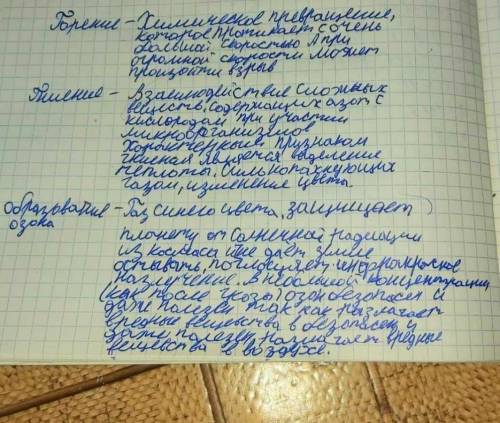 Горение – Химическое превращение,
которое протекает с очень
большой скоростью А при
огромной скорости может
произойти взрыв
Гниение – Взаимодействие сложных
веществ, содержащих азот с
кислородом при участии
микроорганизмов
Характерным признаком
гниения является выделение
теплоты, сильно пахнующих
газом, изменение цвета.
образование – Газ синего цвета, защищает
озона
планету от солнечной радиации
из космоса и не дает земле
остывать, поглощяет инфракрасное
излучение. В небольшой концентрации
(как после грозы) озон безопасен и
даже полезен так как разлагает
вредные вещевства в безопасен и
даже полезен разлагает вредные
вещевства в воздухе.